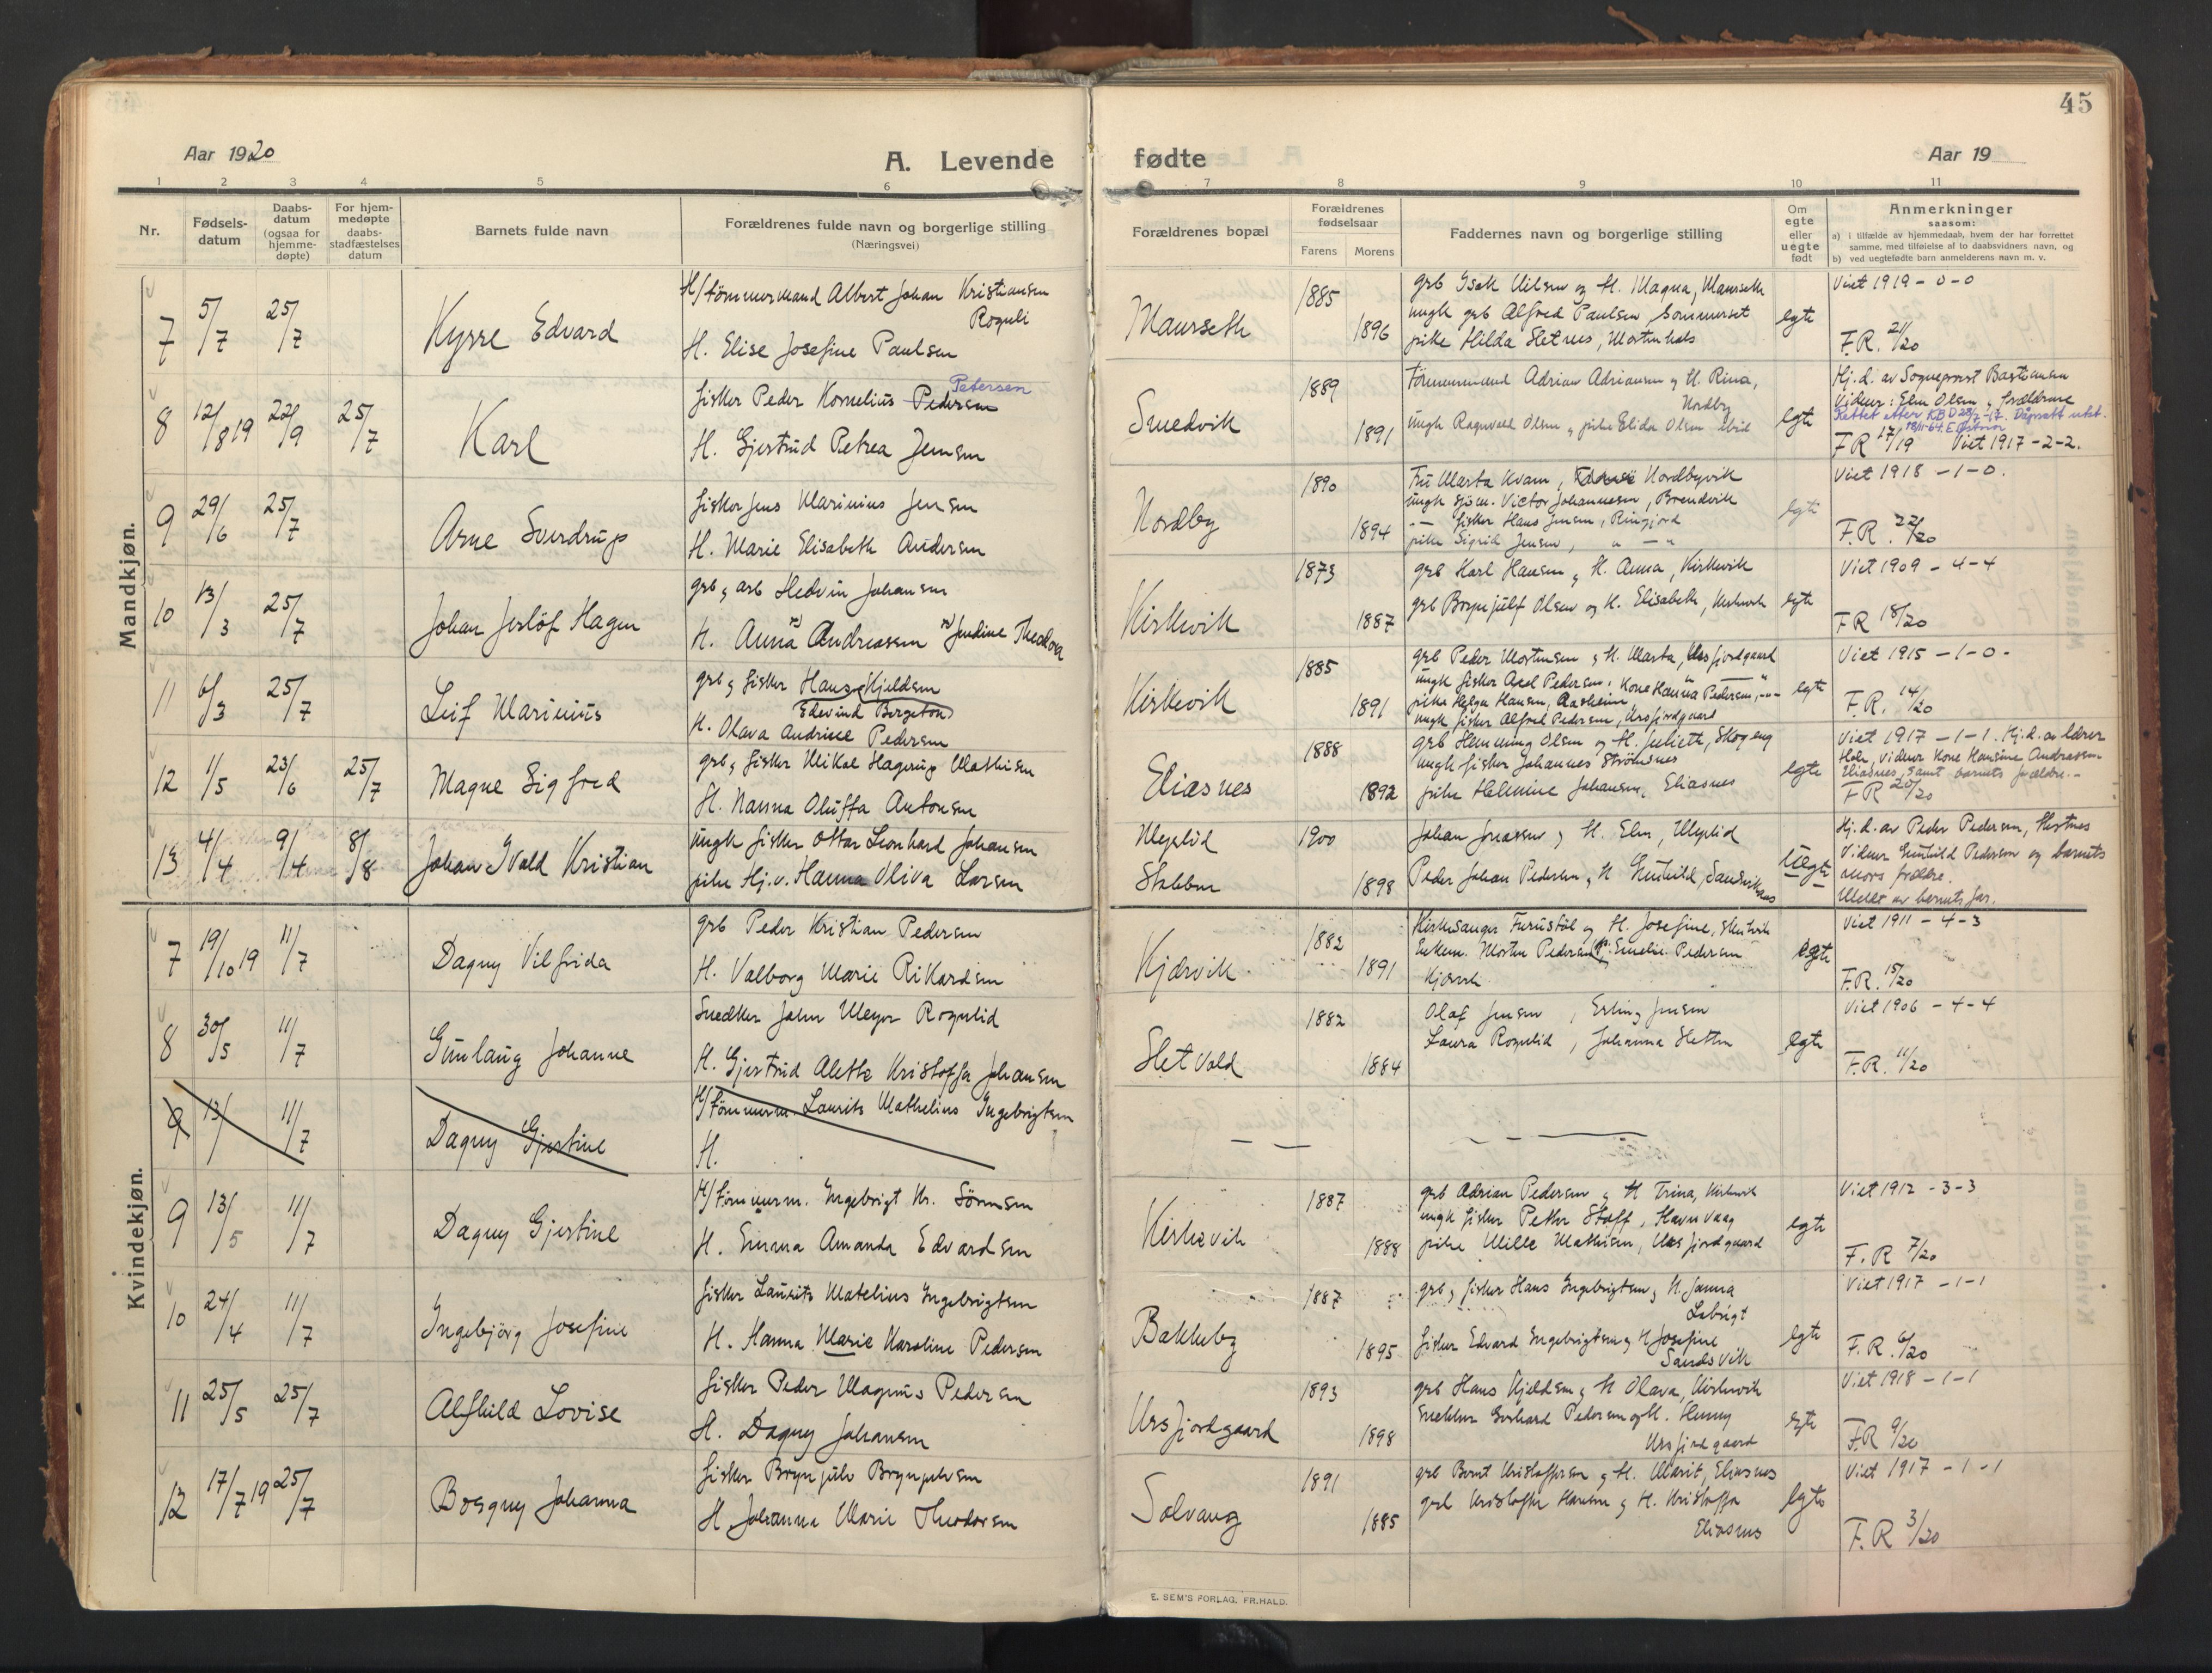 45
Aar 1920
A. Levende
fødte
Aar 19
1 2 3 4 5 6 7 8 9 10 11
Nr.
Fødsels-
datum
Daabs-
datum
(ogsaa for
hjemme-
døpte)
For hjem-
medøpte
daabs-
stadfæstelses
datum
Barnets fulde navn
Forældrenes fulde navn og borgerlige stilling
(Næringsvei)
Forældrenes bopæl
Forældrenes
fødselsaar
Farens Morens
Faddernes navn og borgerlige stilling
Om
egte
eller
uegte
født
Anmerkninger
saasom:
a) i tilfælde av hjemmedaab, hvem der har forrettet
samme, med tilføielse af to daabsvidners navn, og
b) ved uegtefødte barn anmelderens navn m. v.
Mandkjøn.
7 5/7 25/7 Kyrre Edvard
H/tømmermand Albert Johan Kristiansen
Roguli
H. Elise Josefine Paulsen
Maurseth 1885 1896
grb Isak Nilsen og H. Magna, Maurseth
ungk grb Alfred Paulsen, Sommerset
pike Hilda Sletnes, Mortenhals
egte
Viet 1919-0-0
F.R. 21/20
8 12/8 19 22/9 25/7 Karl
fisker Peder Kornelius Pedersen Petersen
H. Gjertrud Petrea Jensen
Smedvik 1889 1891
Tømmermand Adrian Adriansen og H. Rina,
Nordby
ungk Ragnvald Olsen og pike Elida Olsen ibid
egte
Hj.d. av Sogneprest Bastiansen
Vidner: Elen Olsen og forældrene
Rettet etter KB D 28/2-17. Dåpsatt utst.
18/11-64.
FR 17/19 Viet 1917-2-2.
9 29/6 25/7 Arne Sverdrup
fisker Jens Marinius Jensen
H. Marie Elisabeth Andersen
Nordby 1890 1894
Fru Marta Kvam, Nordbyvik
ungk sjøm. Victor Johannesen, Brendvik
-- fisker Hans Jensen, Ringjord
pike Sigrid Jensen, " - "
egte
Viet 1918-1-0.
F.R. 22/20
10 13/3 25/7 Johan Jerlöf Hagen
grb og arb Hedvin Johansen
H. Anna Andreassen Jendine Theodora
Kirkevik 1873 1887
grb Karl Hansen og H. Anna, Kirkevik
grb Brynjulf Olsen og H. Elisabeth, Kirkevik
egte
Viet 1909-4-4
FR 18/20
11 6/3 25/7 Leif Marinius
grb og fisker Hans Kjeldsen
Edevind Bergeton
H. Olava Andrine Pedersen
Kirkevik 1885 1891
grb Peder Mortensen og H. Marta, Ursfjordgaard
ungk fisker Axel Pedersen, Kone Hanna Pedersen, -"-
pike Helga Hansen, Aasheim
ungk fisker Alfred Pedersen, Ursfjordgaard
egte
Viet 1915-1-0-
F.R. 14/20
12 1/5 23/6 25/7 Magne Sigfred
grb og fisker Mikal Hagerup Mathisen
H. Nanna Oluffa Antonsen
Eliasnes 1888 1892
grb Henning Olsen og H. Juliette, Skogeng
ungk fisker Johannes Strömsnes
pike Helmine Johansen, Eliasnes
egte
Viet 1917-1-1. Hj.d. av lærer
Hole, vidner Kone Hansine Andreassen
Eliasnes, samt barnets forældre.-
FR 20/20
13 4/4 9/4 8/8 Johan Ivald Kristian
ungk fisker Ottar Leonhard Johansen
pike Hj.v. Hanna Oliva Larsen
Meplid 1900
Stabben 1898
Johan Jonassen og H. Elen, Meplid
Peder Johan Pedersen og H Gunhild, Sandviknes
Uegte
Hj.d. av Peder Pedersen, Hestnes
Vidner Gunhild Pedersen og barnets
mors forældre.
Meldt av barnets far.
Kvindekjøn.
7 19/10 19 11/7 Dagny Vilfrida
grb Peder Kristian Pedersen
H. Valborg Marie Rikardsen
Kjærvik 1882 1891
Kirkesanger Furustöl og H. Josefine,
Enkem. Morten Pedersen, Emelie Pedersen
Kjærvik
egte
Viet 1911-4-3
F.R. 15/20
8 30/5 11/7 Gunlaug Johanne
Snedker John Meyer Rognlid
H. Gjertrud Alette Kristoffa Johansen
Sletvold 1882 1884
Olaf Jensen, Erling Jensen
Laura Rognlid, Johanna Sletten
egte
Viet 1906-4-4
F.R. 11/20
9 13/ 11/7 Dagny Gjertine
H/Tømmerm. Laurits Mathelius Ingebrigtsen
H.
9 13/5 11/7 Dagny Gjertine
H/Tømmerm. Ingebrigt Kr. Sörensen
H. Emma Amanda Edvardsen
Kirkevik 1887 1888
grb Adrian Pedersen og H Trina, Kirkevik
ungk fisker Petter Staff, Havnvaag
pike Mille Mathisen, Ursfjordgaard
egte
Viet 1912-3-3
F.R 7/20
10 24/4 11/7 Ingebjörg Josefine
fisker Laurits Matelius Ingebrigtsen
H. Hanna Marie Karoline Pedersen
Bakkeby 1887 1895
grb og fisker Hans Ingebrigtsen og H. Janna
fisker Edvard Ingebrigtsen og H Josefine
Sandsvik
egte
Viet 1917-1-1
F.R. 6/20
11 25/5 25/7 Alfhild Lovise
fisker Peder Magnus Pedersen
H. Dagny Johansen
Ursfjordgaard 1893 1898
grb Hans Kjeldsen og H Olava, Kirkevik
Snekker Gerhard Pedersen og H. Henny
Ursfjordgaard
egte
Viet 1918-1-1
F.R 9/20
12 17/7 19 25/7 Borgny Johanna
fisker Brynjulv Brynjulvsen
H Johanna Marie Theodorsen
Solvang 1891 1885
grb Bernt Kristoffersen og H. Marit, Eliasnes
grb Kristoffer Hansen og H. Kristoffa
Eliasnes
egte
Viet 1917-1-1
F.R 3/20
E. SEM'S FORLAG, FR.HALD.